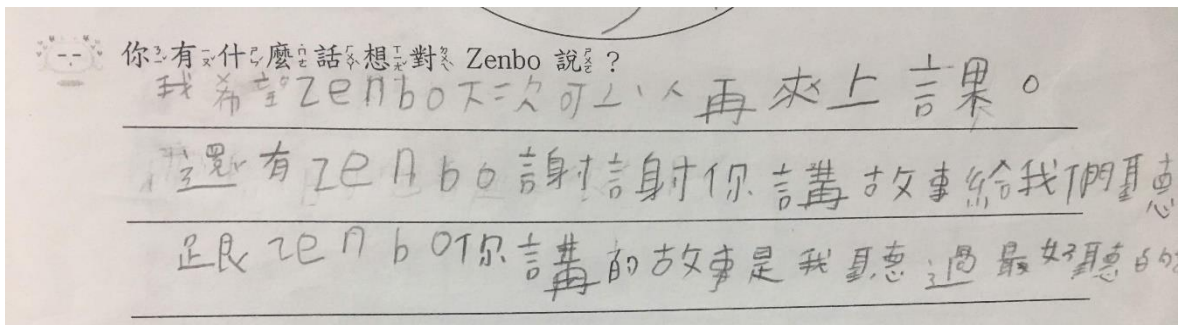 你有什麼話想對 Zenbo 說?
我希望Zenbo下次可以再來上課。
還有Zenbo謝謝你講故事給我們聽
跟Zenbo你講的故事是我聽過最好聽的